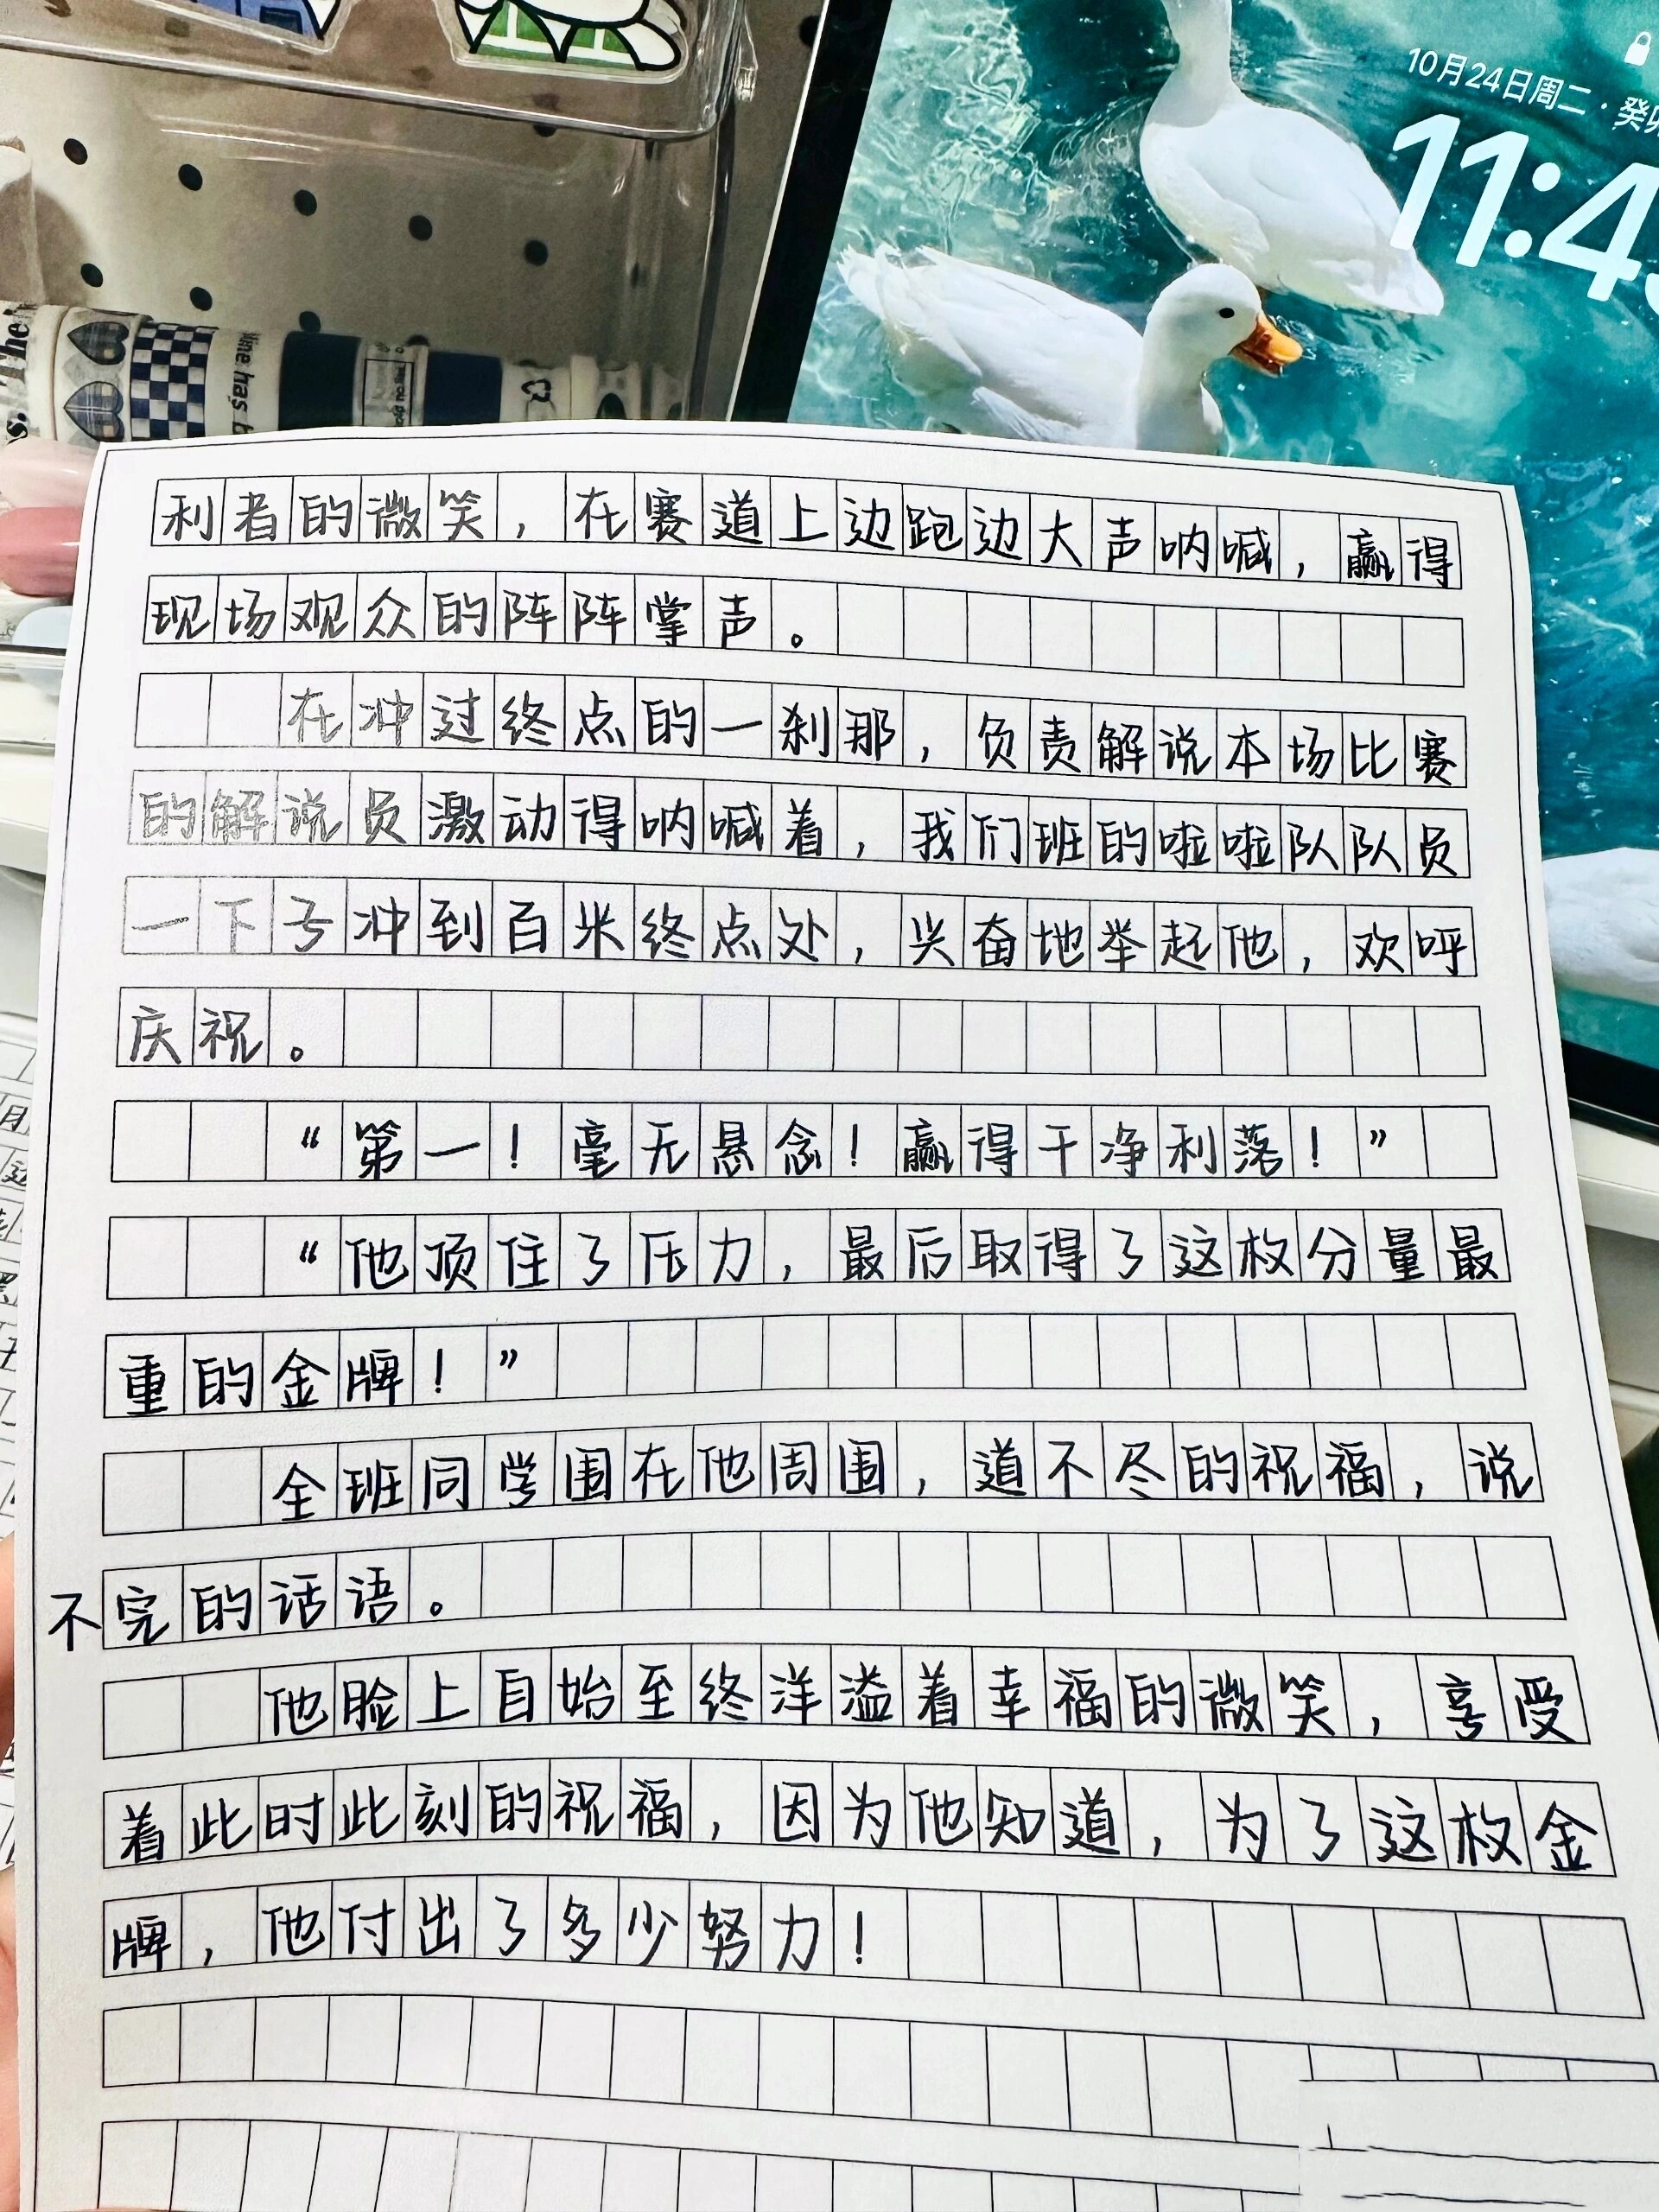 10月24日周二·癸卯
11:4
The
line has
s.
利者的微笑，在赛道上边跑边大声呐喊，赢得
现场观众的阵阵掌声。
在冲过终点的一刹那，负责解说本场比赛
的解说员激动得呐喊着，我们班的啦啦队队员
一下子冲到百米终点处，兴奋地举起他，欢呼
庆祝。
“第一！毫无悬念！赢得干净利落！”
“他顶住了压力，最后取得了这枚分量最
重的金牌！”
全班同学围在他周围，道不尽的祝福，说
不完的话语。
他脸上自始至终洋溢着幸福的微笑，享受
着此时此刻的祝福，因为他知道，为了这枚金
牌，他付出了多少努力！